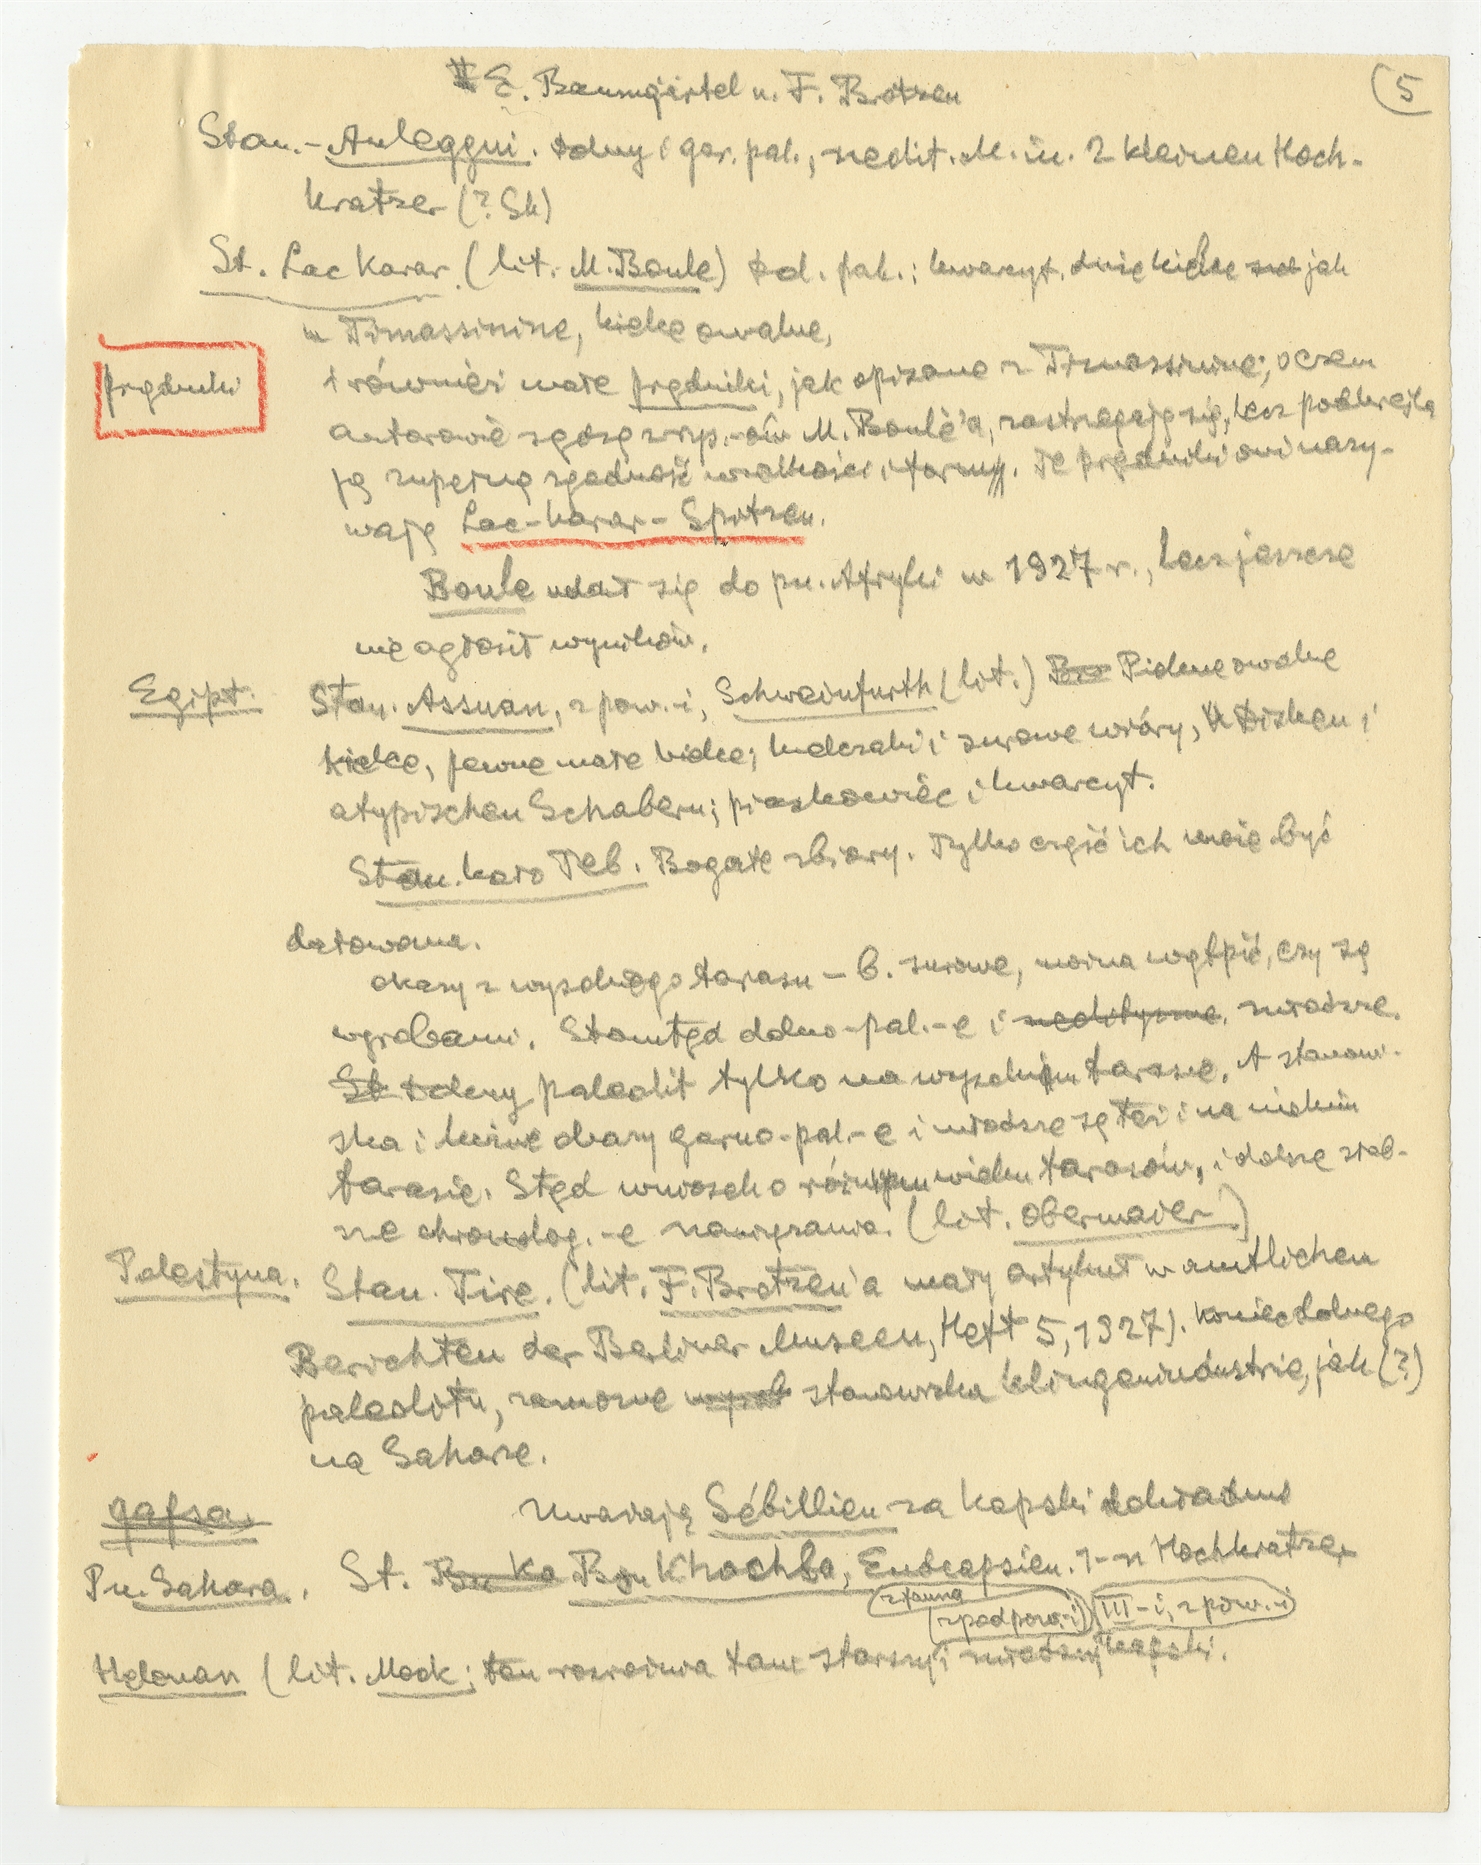 E. Baumgärtel u. F. Brotzen (5
Stan.-Anleggui. dolny i gór. pal., neolit. M. in. 2 kleinen Hoch-
kratzer (? Sk)
St. Lac Karar. (lit. M. Boule) dol. pal.; kwarcyt. duże kielce jak
w Timassinine, kielce owalne,
prądniki
i również małe prądniki, jak opisane z Timassinine; o czem
autorowie M. Boule'a, zastrzegają się, lecz podkreśla
ją zupełną zgodność wielkości i formy. Te prądniki oni nazy-
wają Lac-Karar-Spitzen.
Boule udał się do pn. Afryki w 1927 r., lecz jeszcze
nie ogłosił wyników.
Egipt. Stan. Assuan, z pow.-i, Schweinfurth (lit.) Piękne owalne
kielce, pewne małe kielce; krążki i surowe wióry, Disken i
atypischen Schabern; piaskowiec i kwarcyt.
Stan. koło Teb. Bogate zbiory. Tylko część ich może być
datowana.
okazy z wysokiego tarasu – b. surowe, można wątpić, czy są
wyrobami. Stamtąd dolno-pal.-e i neolityczne. młodsze.
St dolny paleolit tylko na wysokim tarasie. A stanowi-
ska i luźne okazy górno-pal.-e i młodsze są też i na niskim
tarasie. Stąd wniosek o różnym wieku tarasów, i dalsze
ne chronolog.-e nawiązania. (lit. Obermaier)
Palestyna. Stan. Tire. (lit. F. Brotzen'a mały artykuł w amtlichen
Berichten der Berliner Museen, Heft 5, 1927). Koniec dolnego
paleolitu, zamożne wyrob stanowiska klingenindustrie, jak (?)
na Saharze.
Gafsa. Uważają Sébillien za kapski
Pn. Sahara. St. Bu Ka Bou Khachba, Endcapsien. 1-n Hochkratzer
z fauną
z podpow.-i III-i, z pow.-i
Helouan (lit. Mook; ten rozróżnia tam starszy i młodszy kapski.